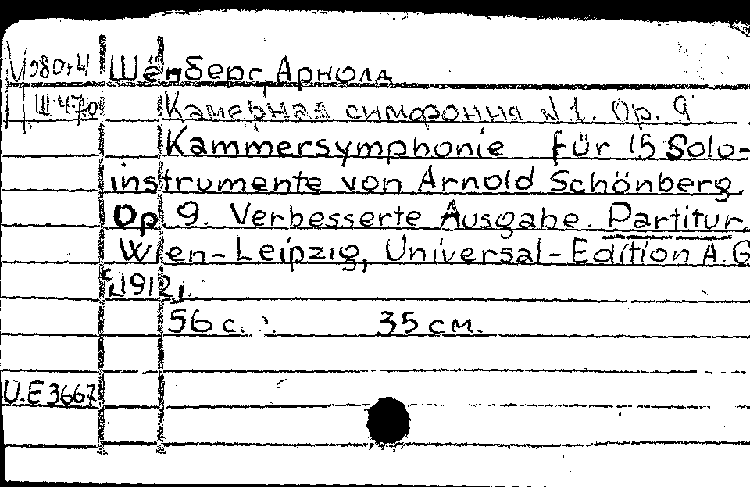 Шёнберг, Арнольд
Ш 470
Камерная симфония №1. Op. 9
Kammersymphonie für 15 Solo-
instrumente von Arnold Schönberg
Op 9. Verbesserte Ausgabe. Partitur.
Wien-Leipzig, Universal-Edition A.G
1912.
56 с. 35 см.
U.E 3667